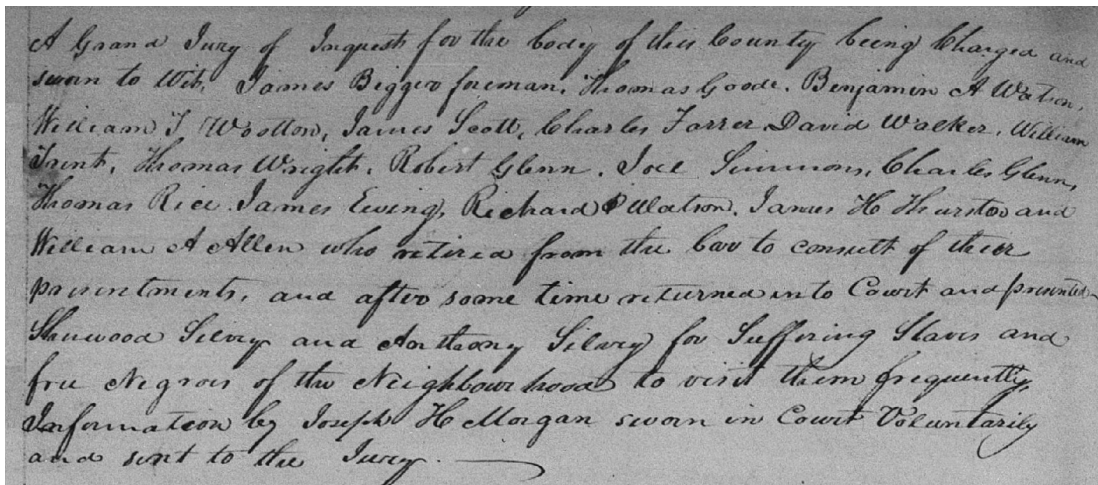 A Grand Jury of Inquest for the body of this County being Charged and
sworn to Wit, James Bigger foreman, Thomas Goode, Benjamin A Watson,
William T. Wootton, James Scott, Charles Farrer David Walker, William
Faint, Thomas Wright, Robert Glenn, Joel Simmons, Charles Glenn,
Thomas Rice James Ewing, Richard P Watson, James H Thurston and
William A Allen who retired from the bar to consult of their
presentments, and after some time returned into Court and presented
Sherwood Silvey and Anthony Silvey for Suffering Slaves and
free Negroes of the Neighbourhood to visit them frequently
Information by Joseph H Morgan sworn in Court Voluntarily
and sent to the Jury.